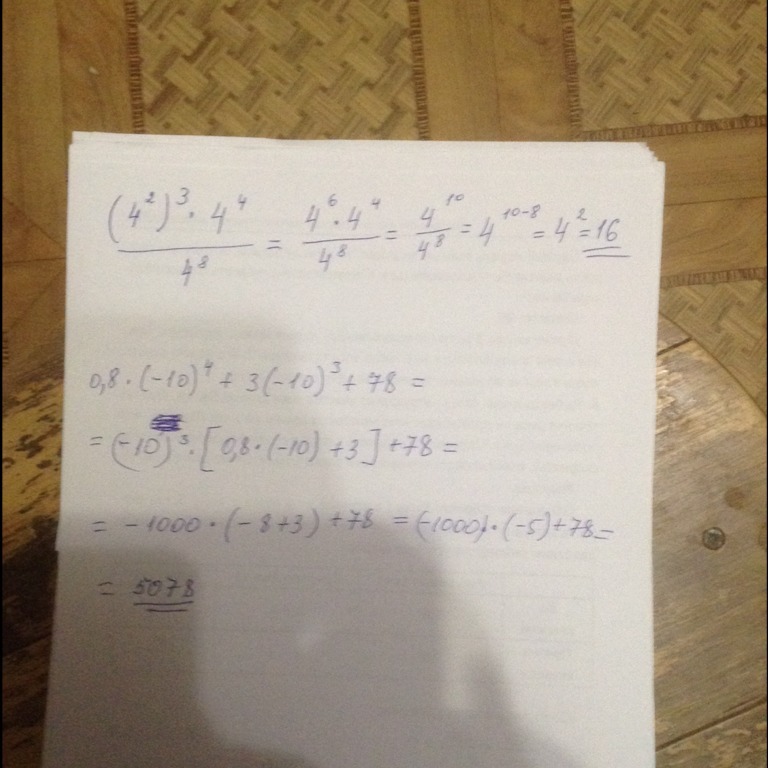 (4²)³ · 4⁴ / 4⁸ = 4⁶ · 4⁴ / 4⁸ = 4¹⁰ / 4⁸ = 4¹⁰⁻⁸ = 4² = 16
0,8 · (-10)⁴ + 3(-10)³ + 78 =
= (-10)³ · [0,8 · (-10) + 3] + 78 =
= -1000 · (-8+3) + 78 = (-1000) · (-5) + 78 =
= 5078